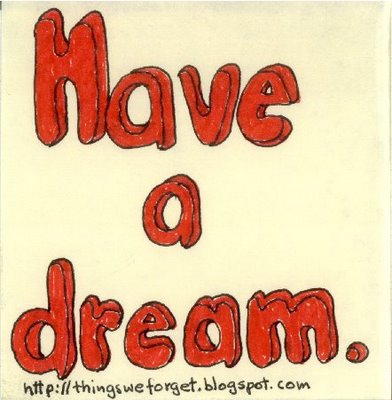 Have
a
dream.
http://thingsweforget.blogspot.com